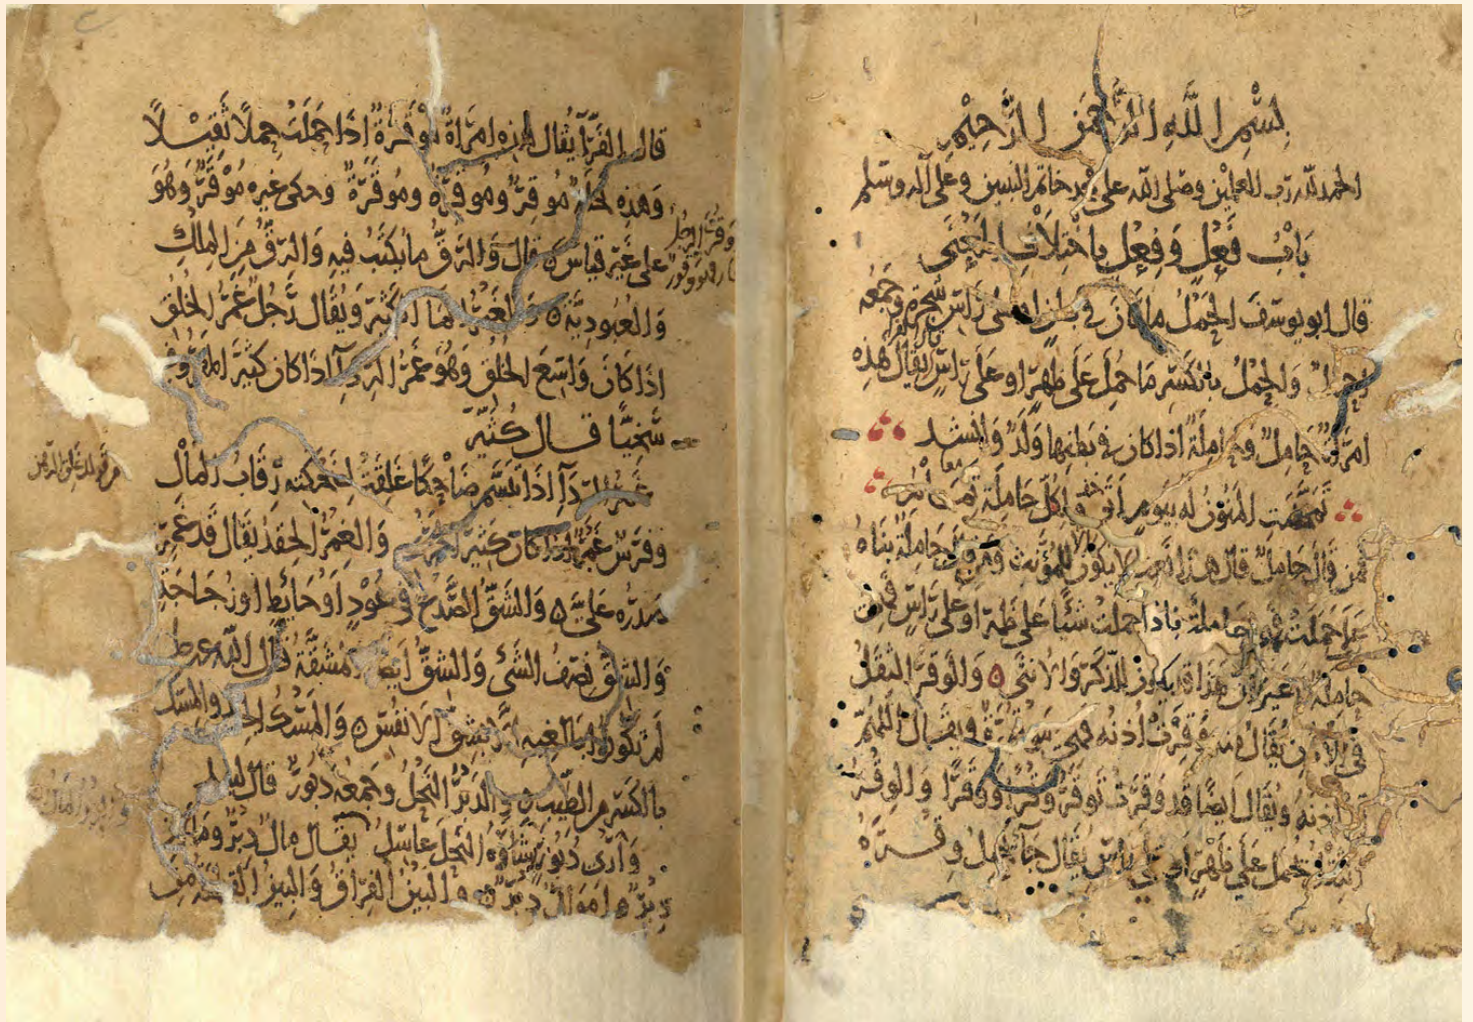 بِسْمِ اللَّهِ الرَّحْمَنِ الرَّحِيمِ
الحمد لله رب العلمين وصلى الله على محمد خاتم النبيين وعلى آله وسلم
بَابُ فَعْلٍ وَفِعْلٍ بِاخْتِلَافِ المَعْنَى
قال ابو يوسف الحَمْلُ ما كان في بطن او على رَأسِ شجرة وجمعه
احمال وَالحِمْلُ بالكسر مَا حُمِلَ عَلَى ظهر او عَلَى رَأسٍ يُقَالُ هذه
امرأة حَامِلٌ وحَامِلَةٌ اذا كان في بطنها وَلَدٌ وانشد
تَمَخَّضَتِ المَنُونُ له بيوم اَنَى ولكل حَامِلَةٍ تمام
فمن قال حَامِلٌ قال هذا نعت لا يكون الا للمؤنث ومن قال حاملة بناه
على حَمَلَتْ فهي حاملة فاذا حملت شيئا على ظهر او على رَأسٍ فهي
حاملة لا غير لان هذا قد يكون للذكر والانثى ۞ وَالوَقْرُ الثِّقَلُ
في الاذن يُقَالُ منه وَقِرَتْ اُذنُه فهي مَوْقُورَةٌ ويقال اللهم
قِرْ اُذنَهُ ويُقَال اَيضًا قد وَقِرَتْ تَوقَرُ وَقْرًا وَالوِقْرُ
الثِّقْلُ يُحْمَلُ عَلَى ظَهْرٍ او على رَأسٍ يُقَال جَآءَ يحمل وِقْرَهُ
قال الفَرَّآءُ يُقَال هذه امرَاةٌ مُوقَرَةٌ اذَا حَمَلَتْ حِملًا ثَقِيْلًا
وَهذِهِ نخلة مُوقِرٌ ومُوقِرَةٌ ومُوقَرَةٌ وَحكى غيره مُوْقَرٌ وَهُوَ
على غَيْرِ قياس ۞ قال وَالرَّقُّ ما يُكتَبُ فيهِ وَالرِّقُّ مِنَ المِلْكِ
وَالعُبُودِيَّةِ ۞ وَالغَمْرُ المَا الكَثِيرُ وَيُقَال رَجُلٌ غَمْرُ الخُلُقِ
اذَا كانَ وَاسِعَ الخُلُقِ وَهُوَ غَمْرُ الرِّدَآءِ اذَا كان كثيرَ المَعْرُوفِ
سَخِيًّا قال كُثَيِّر
غَمْرُ الرِّدَآءِ اذَا تَبَسَّمَ ضَاحِكًا غَلِقَتْ لِضَحكتِهِ رِقَابُ المَالِ
وفَرَسٌ غَمْرٌ اذا كان كثير الجري وَالغِمْرُ الحِقدُ يُقَال قَد غَمِرَ
صدره عَلَيَّ ۞ وَالشَّقُّ الصَّدْعُ في عُوْدٍ اَوْ حَائِطٍ اوزُجَاجَةٍ
وَالشِّقُّ نِصفُ الشَّئ وَالشِّقُّ ايضا المشَقَّةُ قال الله عز وجل
لَمْ تكُونُوا بَالِغِيهِ اِلَّا بِشِقِّ الاَنفُسِ ۞ وَالمَسْكُ الجلد والمِسْك
بالكسر من الطِّيبِ ۞ وَالدَّبْرُ النَّحْلُ وجَمعُه دُبُورٌ قال لبيد
وَاَرْيُ دُبُورٍ شَارَهُ النَّحلَ عاسِلُ يُقَال مالٌ دِبْرٌ ومالان
دِبْرٌ وامَوالٌ دِبْرٌ ۞ والبَيْنُ الفِرَاقُ وَالبِينُ القطعة من